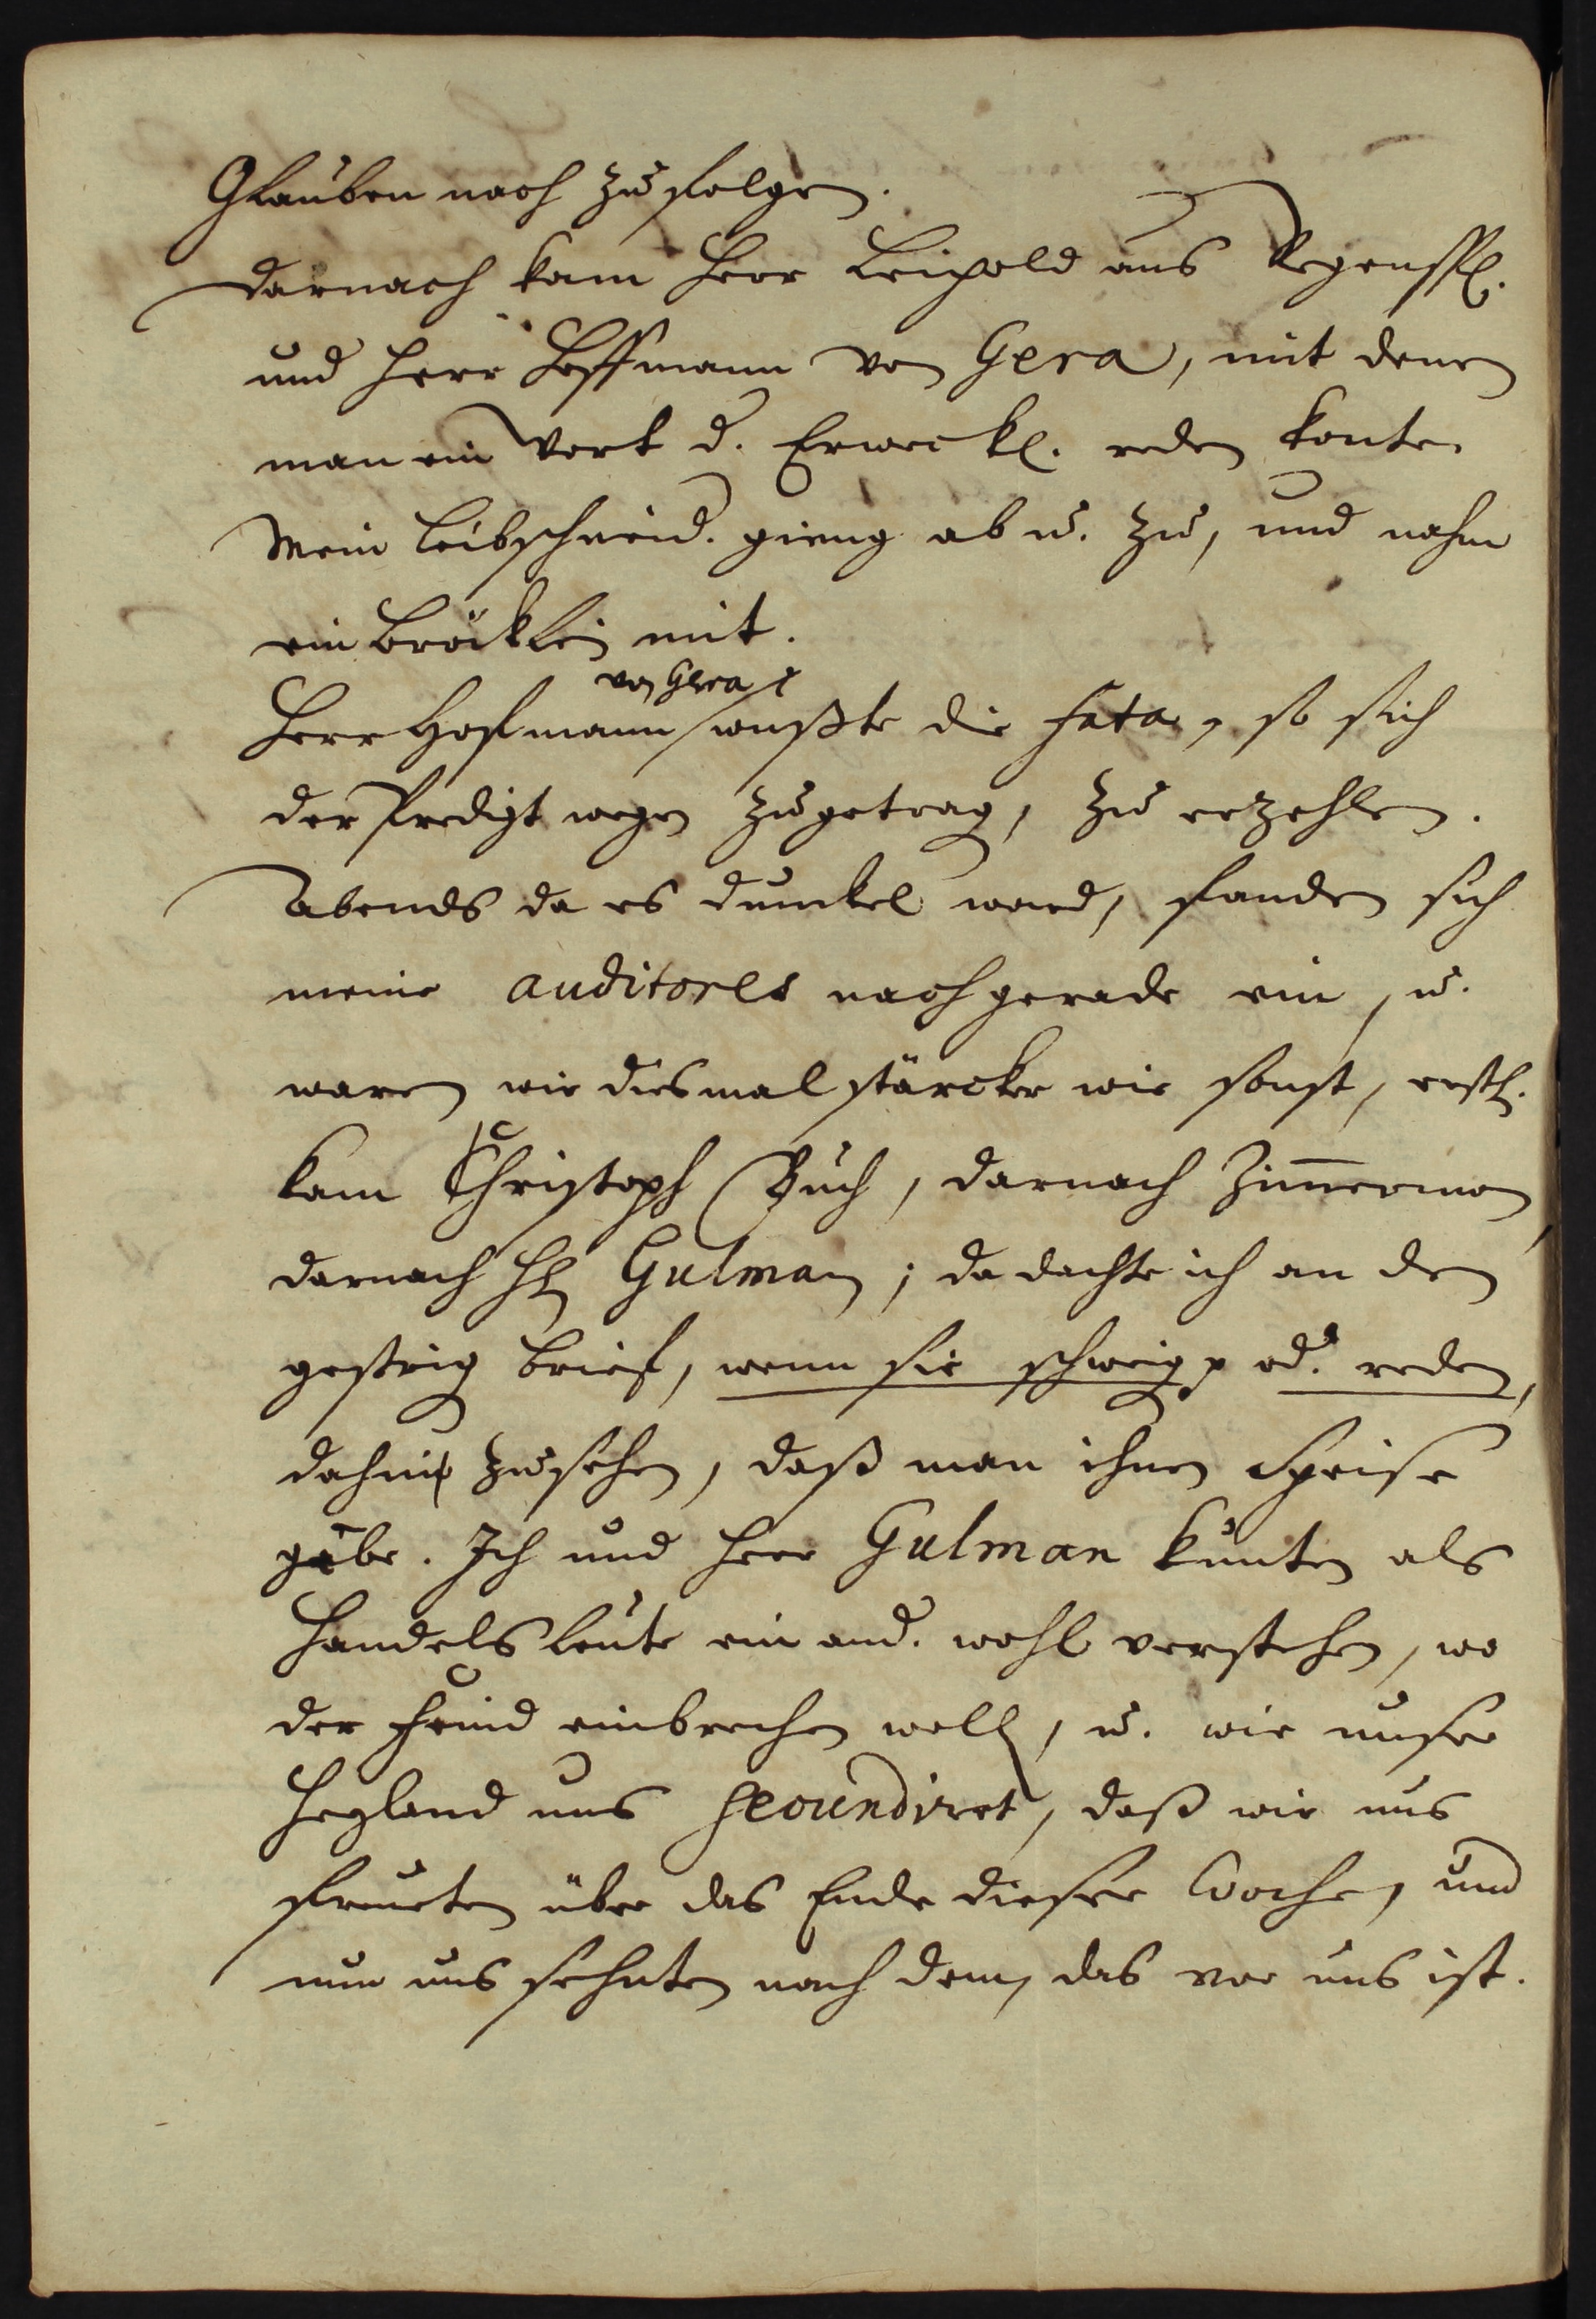 Glauben nach zu folgen.
darnach kam Herr Leipold aus Regenssb.
und Herr Hoffmann von Gera, mit denen
man ein Wort d. Erweckl. reden konte.
Mein Leibschneid. gieng ab u. zu, und nahm
ein Bröcklein mit.
von Gera
Herr Hofmann wußte die Fata, so sich
der Predigt wegen zugetrag, zu erzehlen.
Abends da es dunckel ward, fanden sich
meine auditores nach gerade ein, u.
waren wir diesmal stärcker wie sonst, erstl.
kam Christoph Buch, darnach Zimerman,
darnach H Gulman; da dachte ich an den
gestrig Brief, wenn sie schweig od. reden,
dahin zu sehen, daß man ihnen Speise
gäbe. Ich und Herr Gulman kunten als
Handelsleute ein and. wohl verstehen, wo
der Feind einbrechen woll, u. wie unser
Heyland uns secundiret, daß wir uns
freueten über das Ende dieser Woche, und
nun uns sehnten nach dem, das vor uns ist.